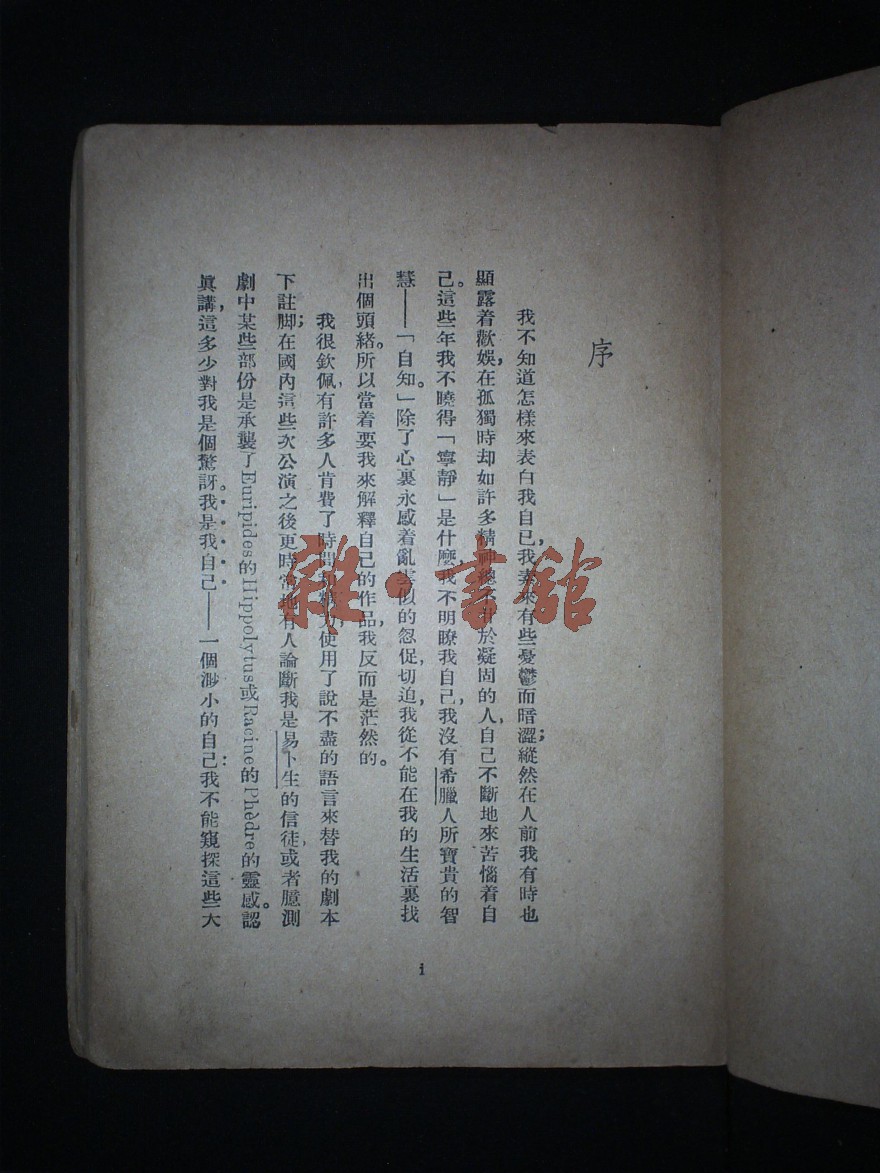 序
我不知道怎樣來表白我自己，我素來有些憂鬱而暗澀；縱然在人前我有時也
顯露着歡娛，在孤獨時却如許多精神總不甘於凝固的人，自己不斷地來苦惱着自
己。這些年我不曉得「寧靜」是什麼，我不明瞭我自己，我沒有希臘人所寶貴的智
慧——「自知。」除了心裏永感着亂雲似的忽促，切迫，我從不能在我的生活裏找
出個頭緒。所以當着要我來解釋自己的作品，我反而是茫然的。
我很欽佩，有許多人肯費了時間和精力，使用了說不盡的語言來替我的劇本
下註脚；在國內這些次公演之後更時常地有人論斷我是易卜生的信徒，或者臆測
劇中某些部份是承襲了Euripides的Hippolytus或Racine的Phèdre的靈感。認
眞講，這多少對我是個驚訝。我是我自己——一個渺小的自己：我不能窺探這些大
i
雜·書館